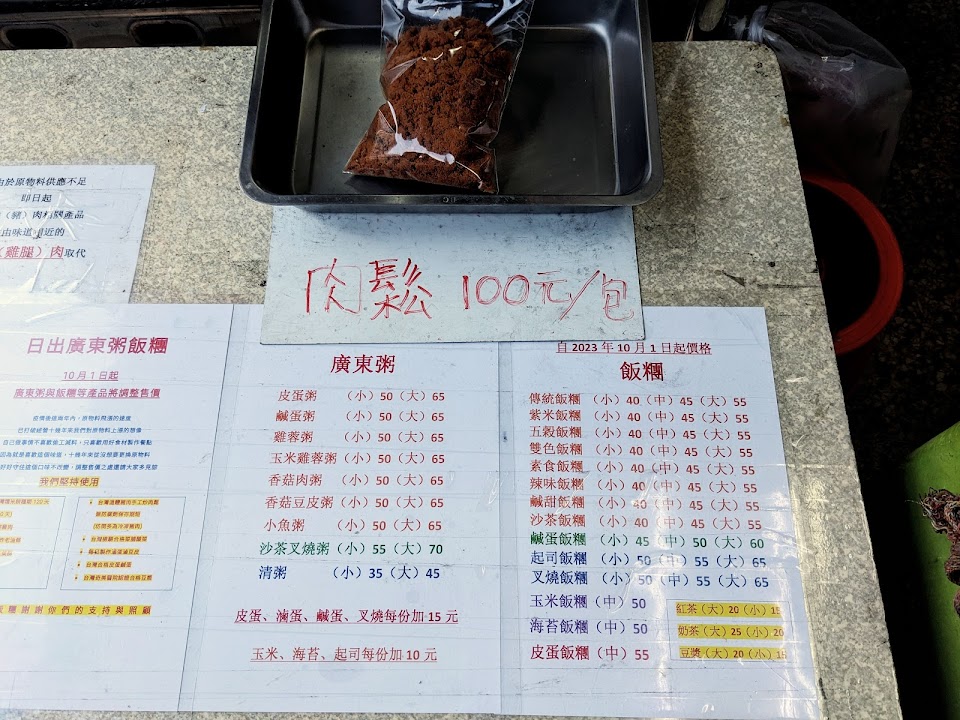 由於原物料供應不足
即日起
（豬）肉相關產品
由味道相近的
（雞腿）肉取代
肉鬆 100元/包
日出廣東粥飯糰
10月1日起
廣東粥與飯糰等產品將調整售價
我們堅持使用
廣東粥
皮蛋粥 （小）50（大）65
鹹蛋粥 （小）50（大）65
雞蓉粥 （小）50（大）65
玉米雞蓉粥（小）50（大）65
香菇肉粥 （小）50（大）65
香菇豆皮粥（小）50（大）65
小魚粥 （小）50（大）65
沙茶叉燒粥（小）55（大）70
清粥 （小）35（大）45
皮蛋、滷蛋、鹹蛋、叉燒每份加 15 元
玉米、海苔、起司每份加 10 元
自 2023 年 10 月 1 日起價格
飯糰
傳統飯糰 （小）40（中）45（大）55
紫米飯糰 （小）40（中）45（大）55
五穀飯糰 （小）40（中）45（大）55
雙色飯糰 （小）40（中）45（大）55
素食飯糰 （小）40（中）45（大）55
辣味飯糰 （小）40（中）45（大）55
鹹甜飯糰 （小）40（中）45（大）55
沙茶飯糰 （小）40（中）45（大）55
鹹蛋飯糰 （小）45（中）50（大）60
起司飯糰 （小）50（中）55（大）65
叉燒飯糰 （小）50（中）55（大）65
玉米飯糰（中）50
海苔飯糰（中）50
皮蛋飯糰（中）55
紅茶（大）20（小）15
奶茶（大）25（小）20
豆漿（大）20（小）15
謝謝你們的支持與照顧